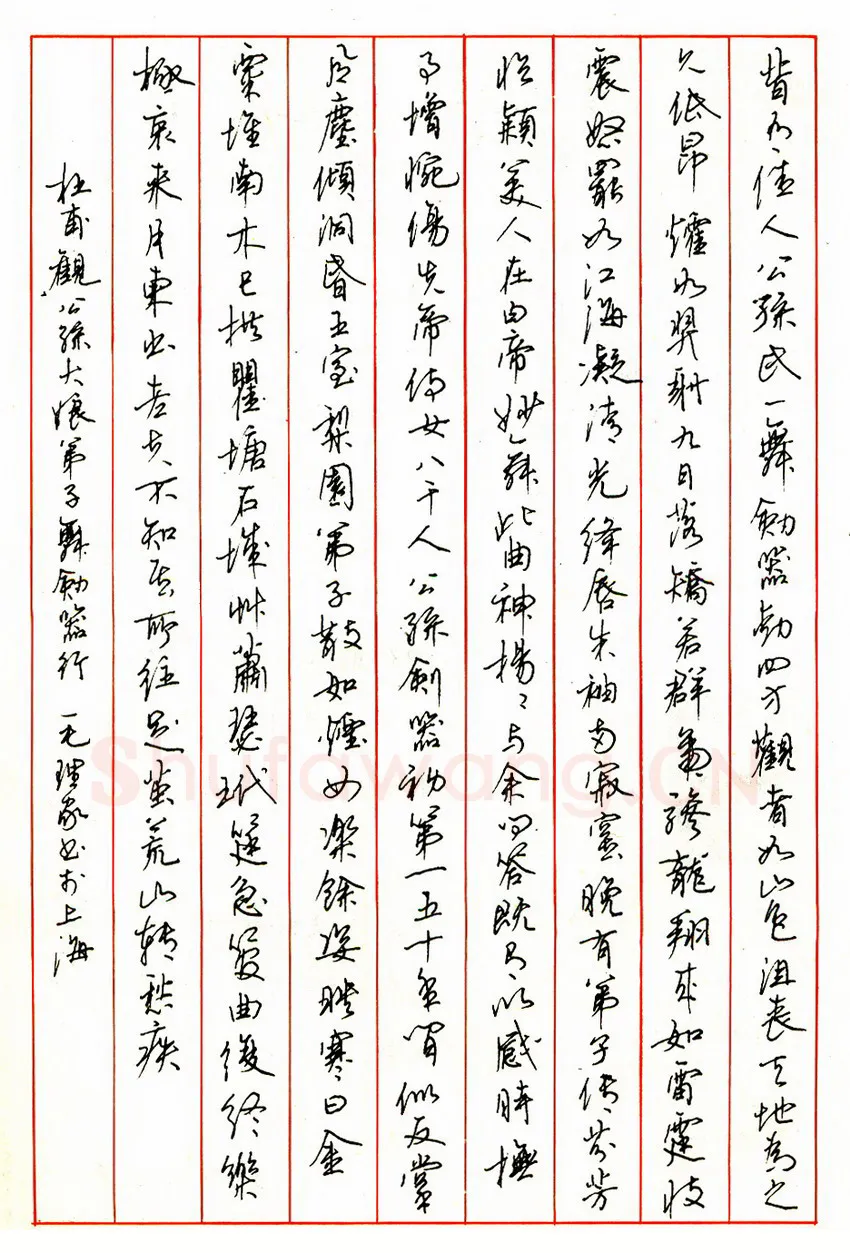 昔有佳人公孫氏一舞劍器動四方觀者如山色沮喪天地為之
久低昂㸌如羿射九日落矯若群帝驂龍翔來如雷霆收
震怒罷如江海凝清光絳唇朱袖兩寂寞晚有第子傳芬芳
臨潁美人在白帝妙舞此曲神揚〻與余問答既有以感時撫
事增惋傷先帝侍女八千人公孫劍器初第一五十年間似反掌
風塵傾洞昏王室梨園第子散如煙女樂餘姿映寒日金
粟堆南木已拱瞿塘石城草蕭瑟玳筵急管曲復終樂
極哀來月東出老夫不知其所往足茧荒山轉愁疾
杜甫觀公孫大娘第子舞劍器行 毛理家書於上海
Shufawang.CN